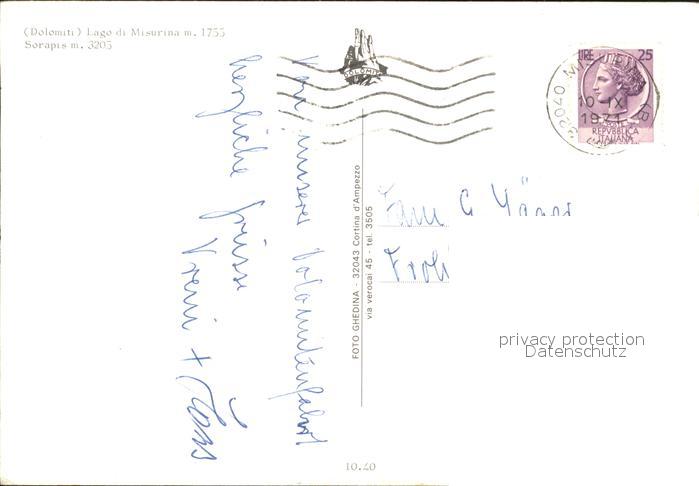 (Dolomiti) Lago di Misurina m. 1755
Sorapis m. 3205
DOLOMITI
LIRE 25
32040 MISURINA
10-IX
1971
REPVBBLICA
ITALIANA
Von unserer Dolomitenfahrt
herzliche Grüsse
Vreni +
FOTO GHEDINA - 32043 Cortina d'Ampezzo
via verocai 45 - tel. 3505
Fam G
privacy protection
Datenschutz
10.40